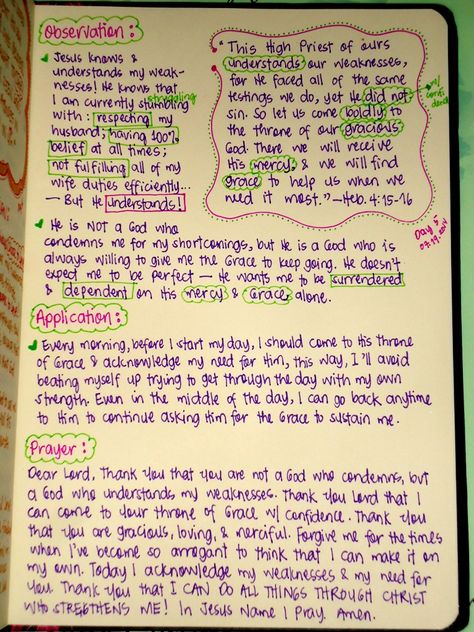 Observation:
Jesus knows &
understands my weak-
nesses! He knows that
I am currently struggling
with: respecting my
husband; having 100%
belief at all times;
not fulfilling all of my
wife duties efficiently...
— But He understands!
"This High Priest of ours
understands our weaknesses,
for He faced all of the same
testings we do, yet He did not
sin. So let us come boldly to
the throne of our gracious
God. There we will receive
His mercy, & we will find
grace to help us when we
need it most." — Heb. 4:15-16
Day 5
He is NOT a God who
condemns me for my shortcomings, but He is a God who is
always willing to give me the Grace to keep going. He doesn't
expect me to be perfect — He wants me to be surrendered
& dependent on His mercy & Grace alone.
Application:
Every morning, before I start my day, I should come to His throne
of Grace & acknowledge my need for Him, this way, I'll avoid
beating myself up trying to get through the day with my own
strength. Even in the middle of the day, I can go back anytime
to Him to continue asking Him for the Grace to sustain me.
Prayer:
Dear Lord, Thank You that You are not a God who condemns, but
a God who understands my weaknesses. Thank You Lord that I
can come to Your throne of Grace w/ confidence. Thank You
that You are gracious, loving, & merciful. Forgive me for the times
when I've become so arrogant to think that I can make it on
my own. Today I acknowledge my weaknesses & my need for
You. Thank You that I CAN DO ALL THINGS THROUGH CHRIST
WHO STREGTHENS ME! In Jesus Name I Pray. Amen.